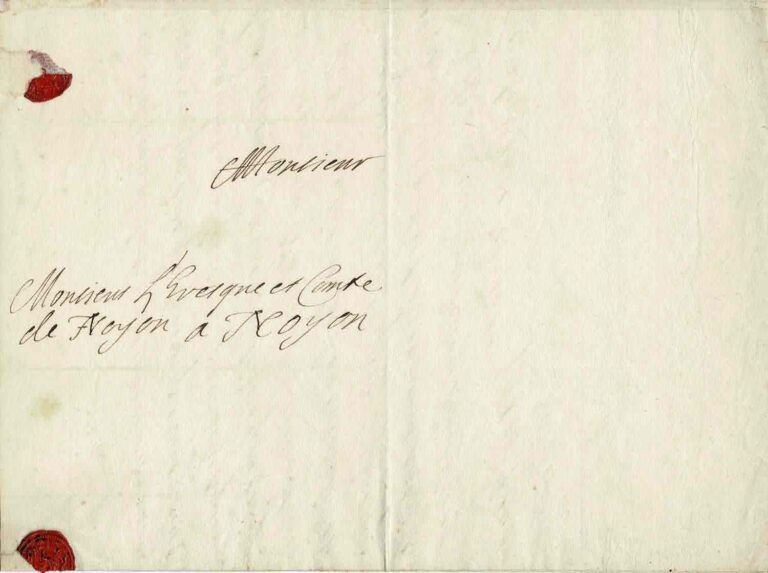 Monsieur
Monsieur L'Evesque et Comte
de Noyon a Noyon